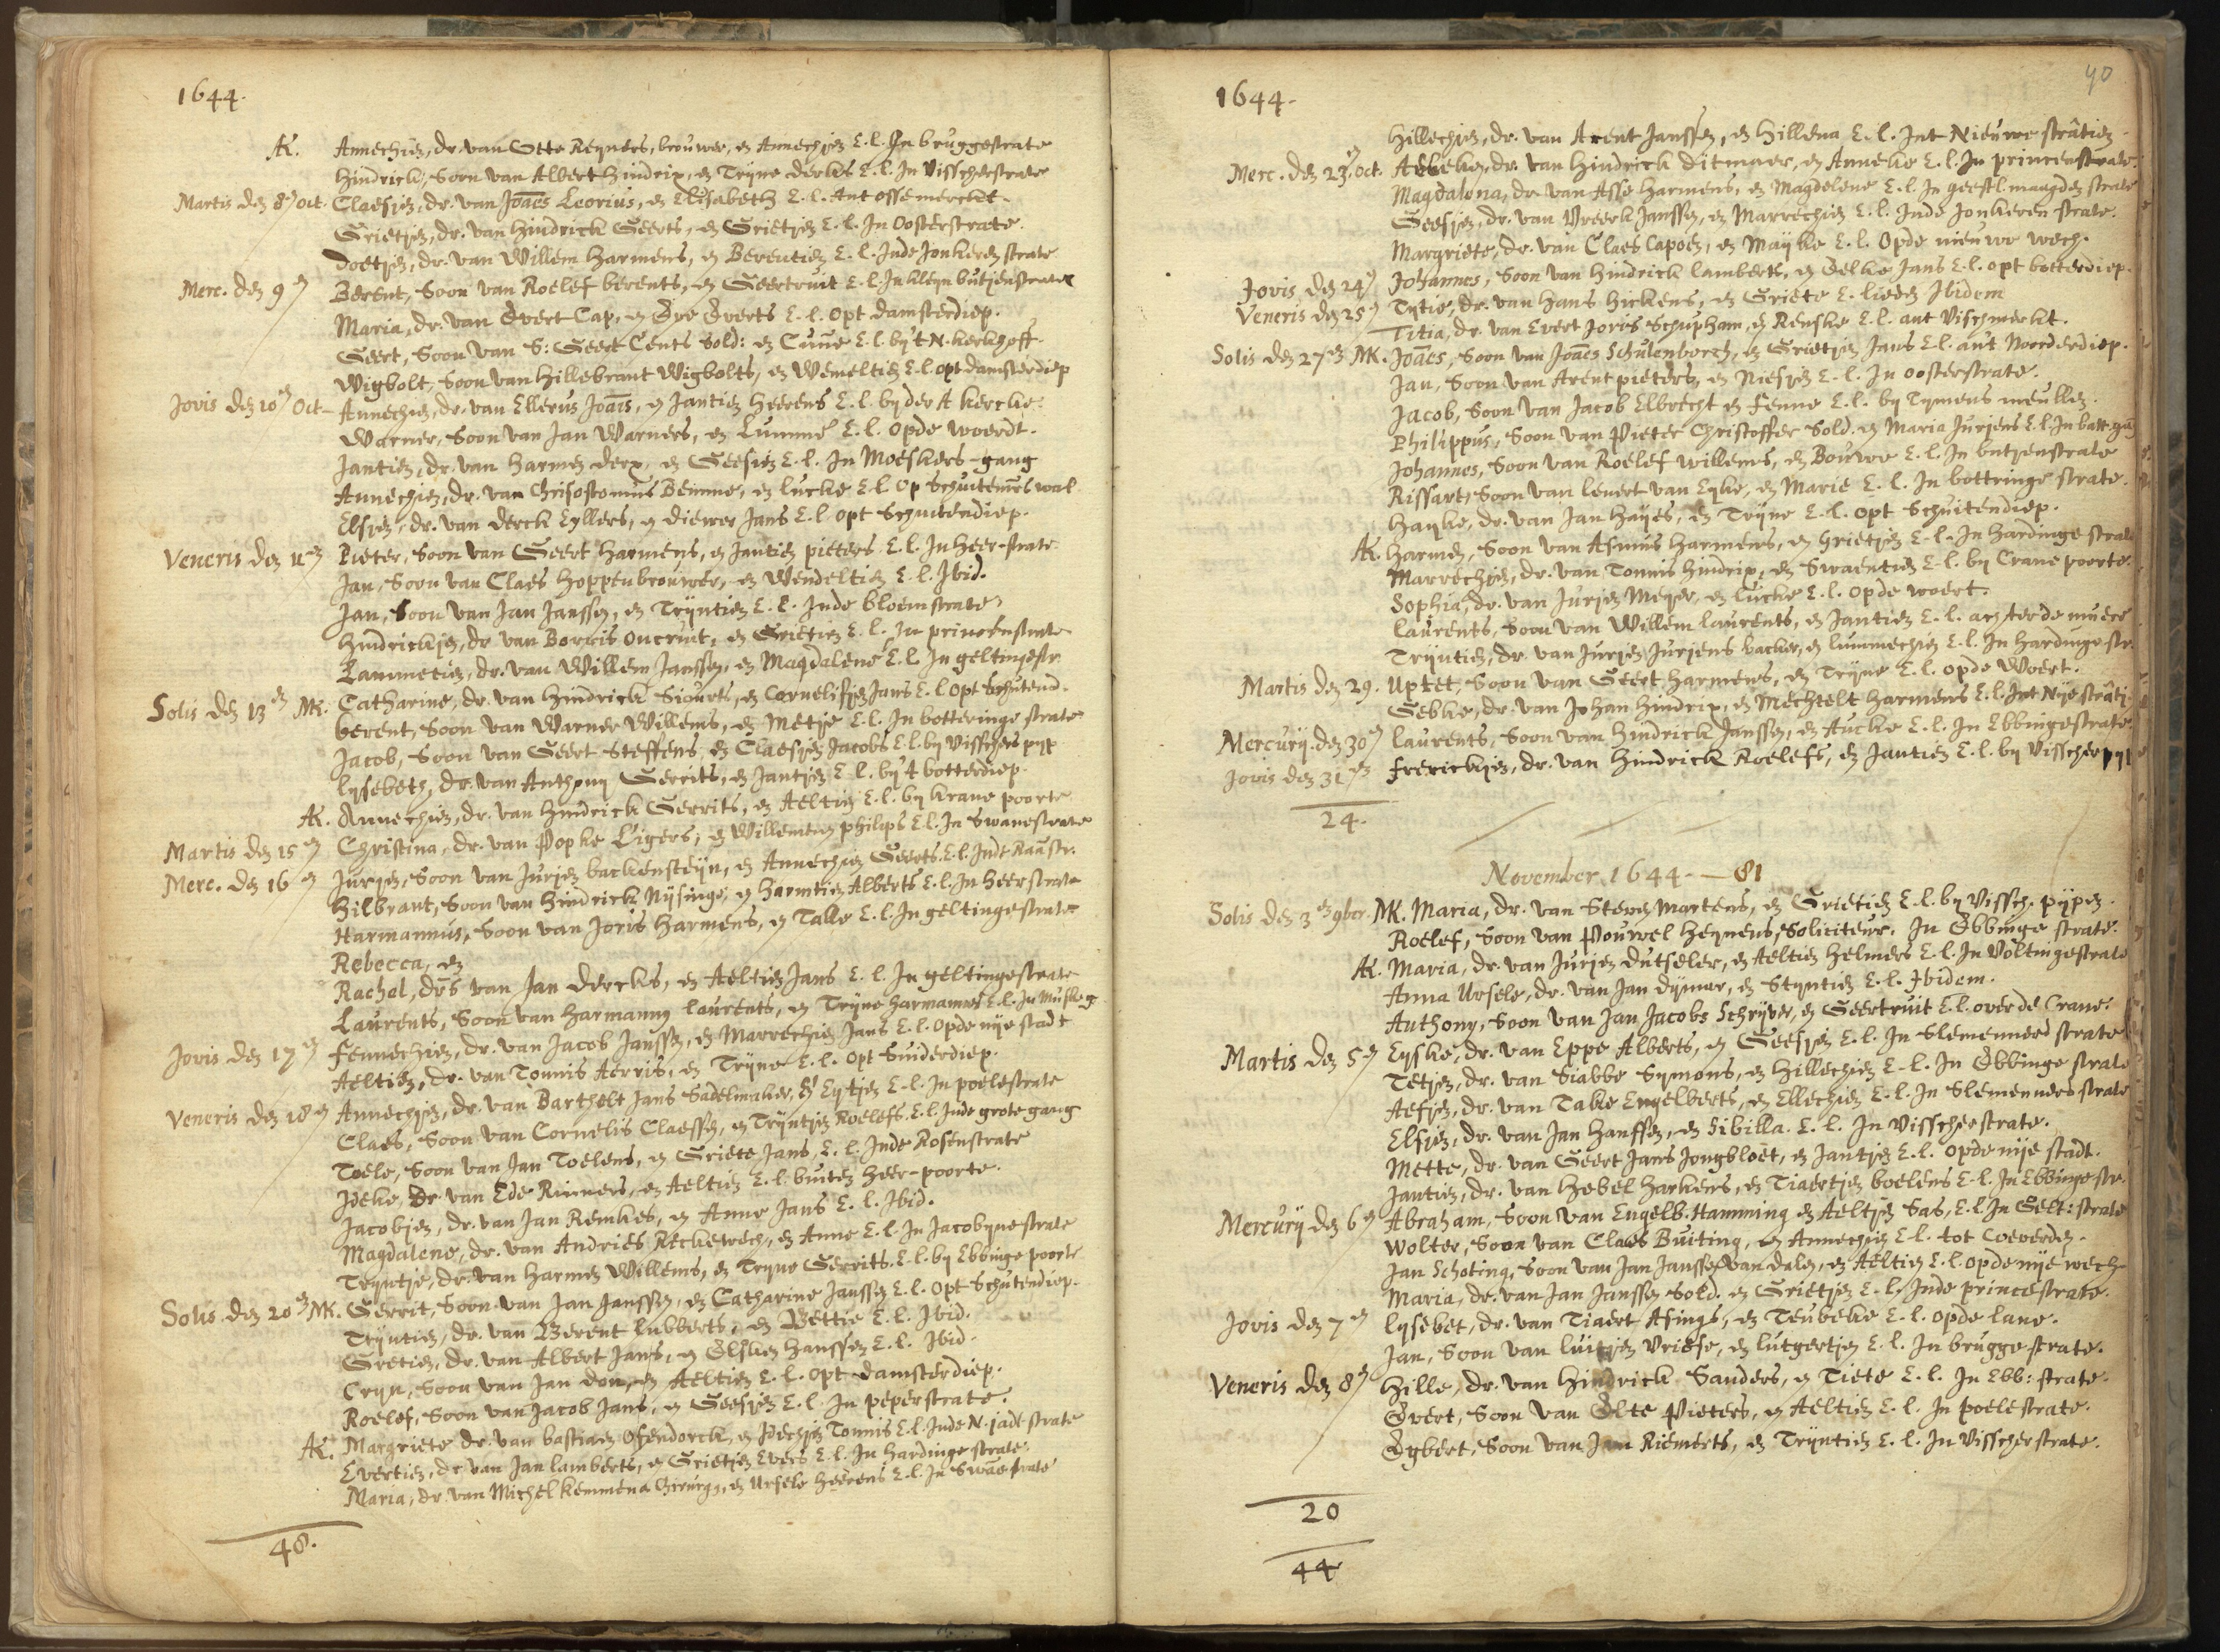 1644.
AK. Annechien, dr. van Otto Reyners, brouwer, en Annechien E.l. In bruggestrate
Hindrick, Soon van Albert Hindrix, en Tryne Derks E.l. In Visscherstrate
Martis den 8en oct. Claesjen, dr. van Joães Leorius, en Elisabeth E.l. Ant ossemerckt.
Grietjen, dr. van Hindrick Geerts, en Grietjen E.l. In Oosterstrate.
Doetjen, dr. van Willem Harmens, en Berentien E.l. Inde Jonkeren strate
Merc. den 9en Berent, Soon van Roelef berents, en Geertruit E.l. In kleyn butjenstrate
Maria, dr. van Evert Cap, en Eve Everts E.l. opt damsterdiep.
Geert, Soon van S: Geert Cents Sold: en Cune E.l. by't N. kerkhoff.
Wigbolt, Soon van Hillebrant Wigbolts, en Wemeltien E.l. opt damsterdiep
Jovis den 10en Oct. Annechien, dr. van Ellerus Joãis, en Jantien Heerens E.l. by der A kercke.
Warner, Soon van Jan Warners, en Lumme E.l. Opde woerdt.
Jantien, dr. van Harmen Derx, en Geesjen E.l. In Moeskers-gang
Annechien, dr. van Chrisostomus Bemme, en Lucke E.l. Op Schuitemrs wal
Elsjen, dr. van Derck Eyllers, en Diewer Jans E.l. opt Schuitendiep.
Veneris den 11en Pieter, Soon van Geert Harmens, en Jantien pieters E.l. In Heer-strate
Jan, Soon van Claes Hoppenbrouwer, en Wendeltien E.l. Ibid.
Jan, Soon van Jan Janssen, en Tryntien E.l. Inde bloemstrate
Hindrickjen, dr. van Borris Oncruit, en Grietien E.l. In princenstrate
Lammetien, dr. van Willem Janssen, en Magdalene E.l. In geltingestr.
Solis den 13en MK. Catharine, dr. van Hindrick Siourts, en Cornelisjen Jans E.l. Opt Schutend.
berent, Soon van Warner Willems, en Metje E.l. In botteringe strate
Jacob, Soon van Geert Steffens, en Claesjen Jacobs E.l. by Visschers pyp
Lysebeth, dr. van Anthony Gerrits, en Jantjen E.l. by't botterdiep.
AK. Annechien, dr. van Hindrick Gerrits, en Aeltien E.l. by krane poorte
Martis den 15en Christina, dr. van Popke Eigers, en Willemtien philips E.l. In Swanestrate
Merc. den 16en Jurjen, Soon van Jurjen backensteyn, en Annechien Geerts E.l. Indt Raustr.
Hilbrant, Soon van Hindrick Nysinge, en Harmtien Alberts E.l. In Heerstrate
Harmannus, Soon van Joris Harmens, en Talle E.l. In geltingestrate
Rebecca, en
Rachel, drs van Jan Dercks, en Aeltien Jans E.l. In geltingestrate
Laurents, Soon van Harmannus Laurents, en Tryne Harmannes E.l. In Muskeg.
Jovis den 17en Fennechien, dr. van Jacob Janssen, en Marrechien Jans E.l. Opde nye stadt
Aeltien, dr. van Tonnis Aerris, en Tryne E.l. opt Suiderdiep.
Veneris den 18en Annechjen, dr. van Barthelt Jans Sadelmaker, en Eytjen E.l. In poelestrate
Claes, Soon van Cornelis Claessen, en Tryntjen Roelefs E.l. Inde grote gang
Toele, Soon van Jan Toelens, en Griete Jans, E.l. Inde Rosenstrate
Ideke, dr. van Ede Rinners, en Aeltien E.l. buiten Heer-poorte.
Jacobjen, dr. van Jan Remkes, en Anne Jans E.l. Ibid.
Magdalene, dr. van Andries Reckewech, en Anne E.l. In Jacobynestrate
Teyntje, dr. van Harmen Willems, en Tryne Gerrits E.l. by Ebbinge poorte
Solis den 20en MK. Gerrit, Soon van Jan Janssen, en Catharine Janssen E.l. Opt Schutendiep.
Tryntien, dr. van Berent Lubberts, en Bettie E.l. Ibid.
Gretien, dr. van Albert Jans, en Elsken Hanssen E.l. Ibid.
Cryn, Soon van Jan Don, en Aeltien E.l. Opt damsterdiep.
Roelef, Soon van Jacob Jans, en Geesjen E.l. In peperstrate.
AK. Margriete dr. van bastiaen Ofendorck, en Idechjen Tonnis E.l. Inde N. jadt strate
Evertien, dr. van Jan Lamberts, en Grietjen Evers E.l. In Hardinge strate.
Maria, dr. van Michel Kemmena Chirurg, en Ursele Heerens E.l. In Swãe strate
48.
40
1644.
Hillechjen, dr. van Arent Janssen, en Hillena E.l. Int Nieuwe strâtien
Merc. den 23en oct. Aebeke, dr. van Hindrick Ditmaer, en Anneke E.l. In princenstrate.
Magdalena, dr. van Asse Harmens, en Magdelene E.l. In geestl. maagden strate
Geesjen, dr. van Vreerk Janssen, en Marrechien E.l. Inde Jonkeren strate.
Margriete, dr. van Claes Capoen, en Mayke E.l. Opde nieuwe wech.
Jovis den 24en Johannes, Soon van Hindrick Lamberts, en Eelke Jans E.l. opt botterdiep.
Veneris den 25en Tytie, dr. van Hans Hickens, en Griete E. lieden Ibidem
Titia, dr. van Evert Joris Schupham, en Renske E.l. ant Vischmerkt.
Solis den 27en MK. Joães, Soon van Joães Schulenborch, en Grietjen Jans E.l. ant Noorderdiep.
Jan, Soon van Arent pieters, en Niesjen E.l. In Oosterstrate.
Jacob, Soon van Jacob Elbrecht en Fenne E.l. by Tymens meullen.
Philippus, Soon van Pieter Christoffer Sold. en Maria Jurjens E.l. In batt. gãg
Johannes, Soon van Roelef Willems, en Bouwe E.l. In butjenstrate
Rissart, Soon van Lenert van Eyke, en Marie E.l. In bottringe strate.
Hayke, dr. van Jan Hayes, en Tryne E.l. opt Schuitendiep.
AK. Harmen, Soon van Asmus Harmens, en Grietjen E.l. In Hardinge strate
Marrechjen, dr. van Tonnis Hindrix, en Swaentien E.l. by Crane poorte.
Sophia, dr. van Jurjen Meyer, en Lucke E.l. opde woert.
Laurents, Soon van Willem Laurents, en Jantien E.l. achter de muere
Tryntien, dr. van Jurjen Jurjens backer, en Lummechien E.l. In Hardinge str.
Martis den 29. Uptet, Soon van Geert Harmens, en Tryne E.l. opde Woert.
Gebke, dr. van Johan Hindrix, en Mechtelt Harmens E.l. Int Nye strâtj.
Mercurij den 30en Laurents, Soon van Hindrick Janssen, en Aucke E.l. In Ebbingestrate.
Jovis den 31en Frerickjen, dr. van Hindrick Roelefs, en Jantien E.l. by Visscher pyp
24.
November 1644. — 81
Solis den 3en 9ber. MK. Maria, dr. van Steven Martens, en Grietien E.l. by Vissch. pypen.
Roelef, Soon van Pouwel Heynens, Soliciteur. In Ebbinge strate.
AK. Maria, dr. van Jurjen Dutseler, en Aeltien Helmers E.l. In Voltingestrate
Anna Ursele, dr. van Jan Dymer, en Styntien E.l. Ibidem.
Anthony, Soon van Jan Jacobs Schryver, en Geertruit E.l. over de Crane.
Martis den 5en Eyske, dr. van Eppe Alberts, en Geesjen E.l. In Slemenners strate
Tetjen, dr. van Siabbe Symons, en Hillechien E.l. In Ebbinge strate
Aefjen, dr. van Take Engelberts, en Ellechien E.l. In Slemenners strate
Elsjen, dr. van Jan Hanssen, en Sibilla. E.l. In Visscherstrate.
Mette, dr. van Geert Jans Jongbloet, en Jantjen E.l. opde nije stadt.
Jantien, dr. van Hebel Harkens, en Tiaertjen boelens E.l. In Ebbinge str.
Mercurij den 6en Abraham, Soon van Engelb. Hamming en Aeltjen Sas, E.l. In Gelt: strate
Wolter, Soon van Claes Buiting, en Annechien E.l. tot Coeverden.
Jan Schoting, Soon van Jan Janssen van Dalen, en Aeltien E.l. opde nije wech
Maria, dr. van Jan Janssen Sold. en Grietjen E.l. Inde princestrate.
Jovis den 7en Lysebet, dr. van Tiaert Asings, en Teubeke E.l. opde lane.
Jan, Soon van Luitjen Vriese, en Lutgertjen E.l. In brugge strate.
Veneris den 8en Hille, dr. van Hindrick Sanders, en Tiete E.l. In Ebb: strate.
Evert, Soon van Elte Pieters, en Aeltien E.l. In poelestrate.
Egbert, Soon van Jan Riemerts, en Tryntien E.l. In Visscherstrate.
20
44